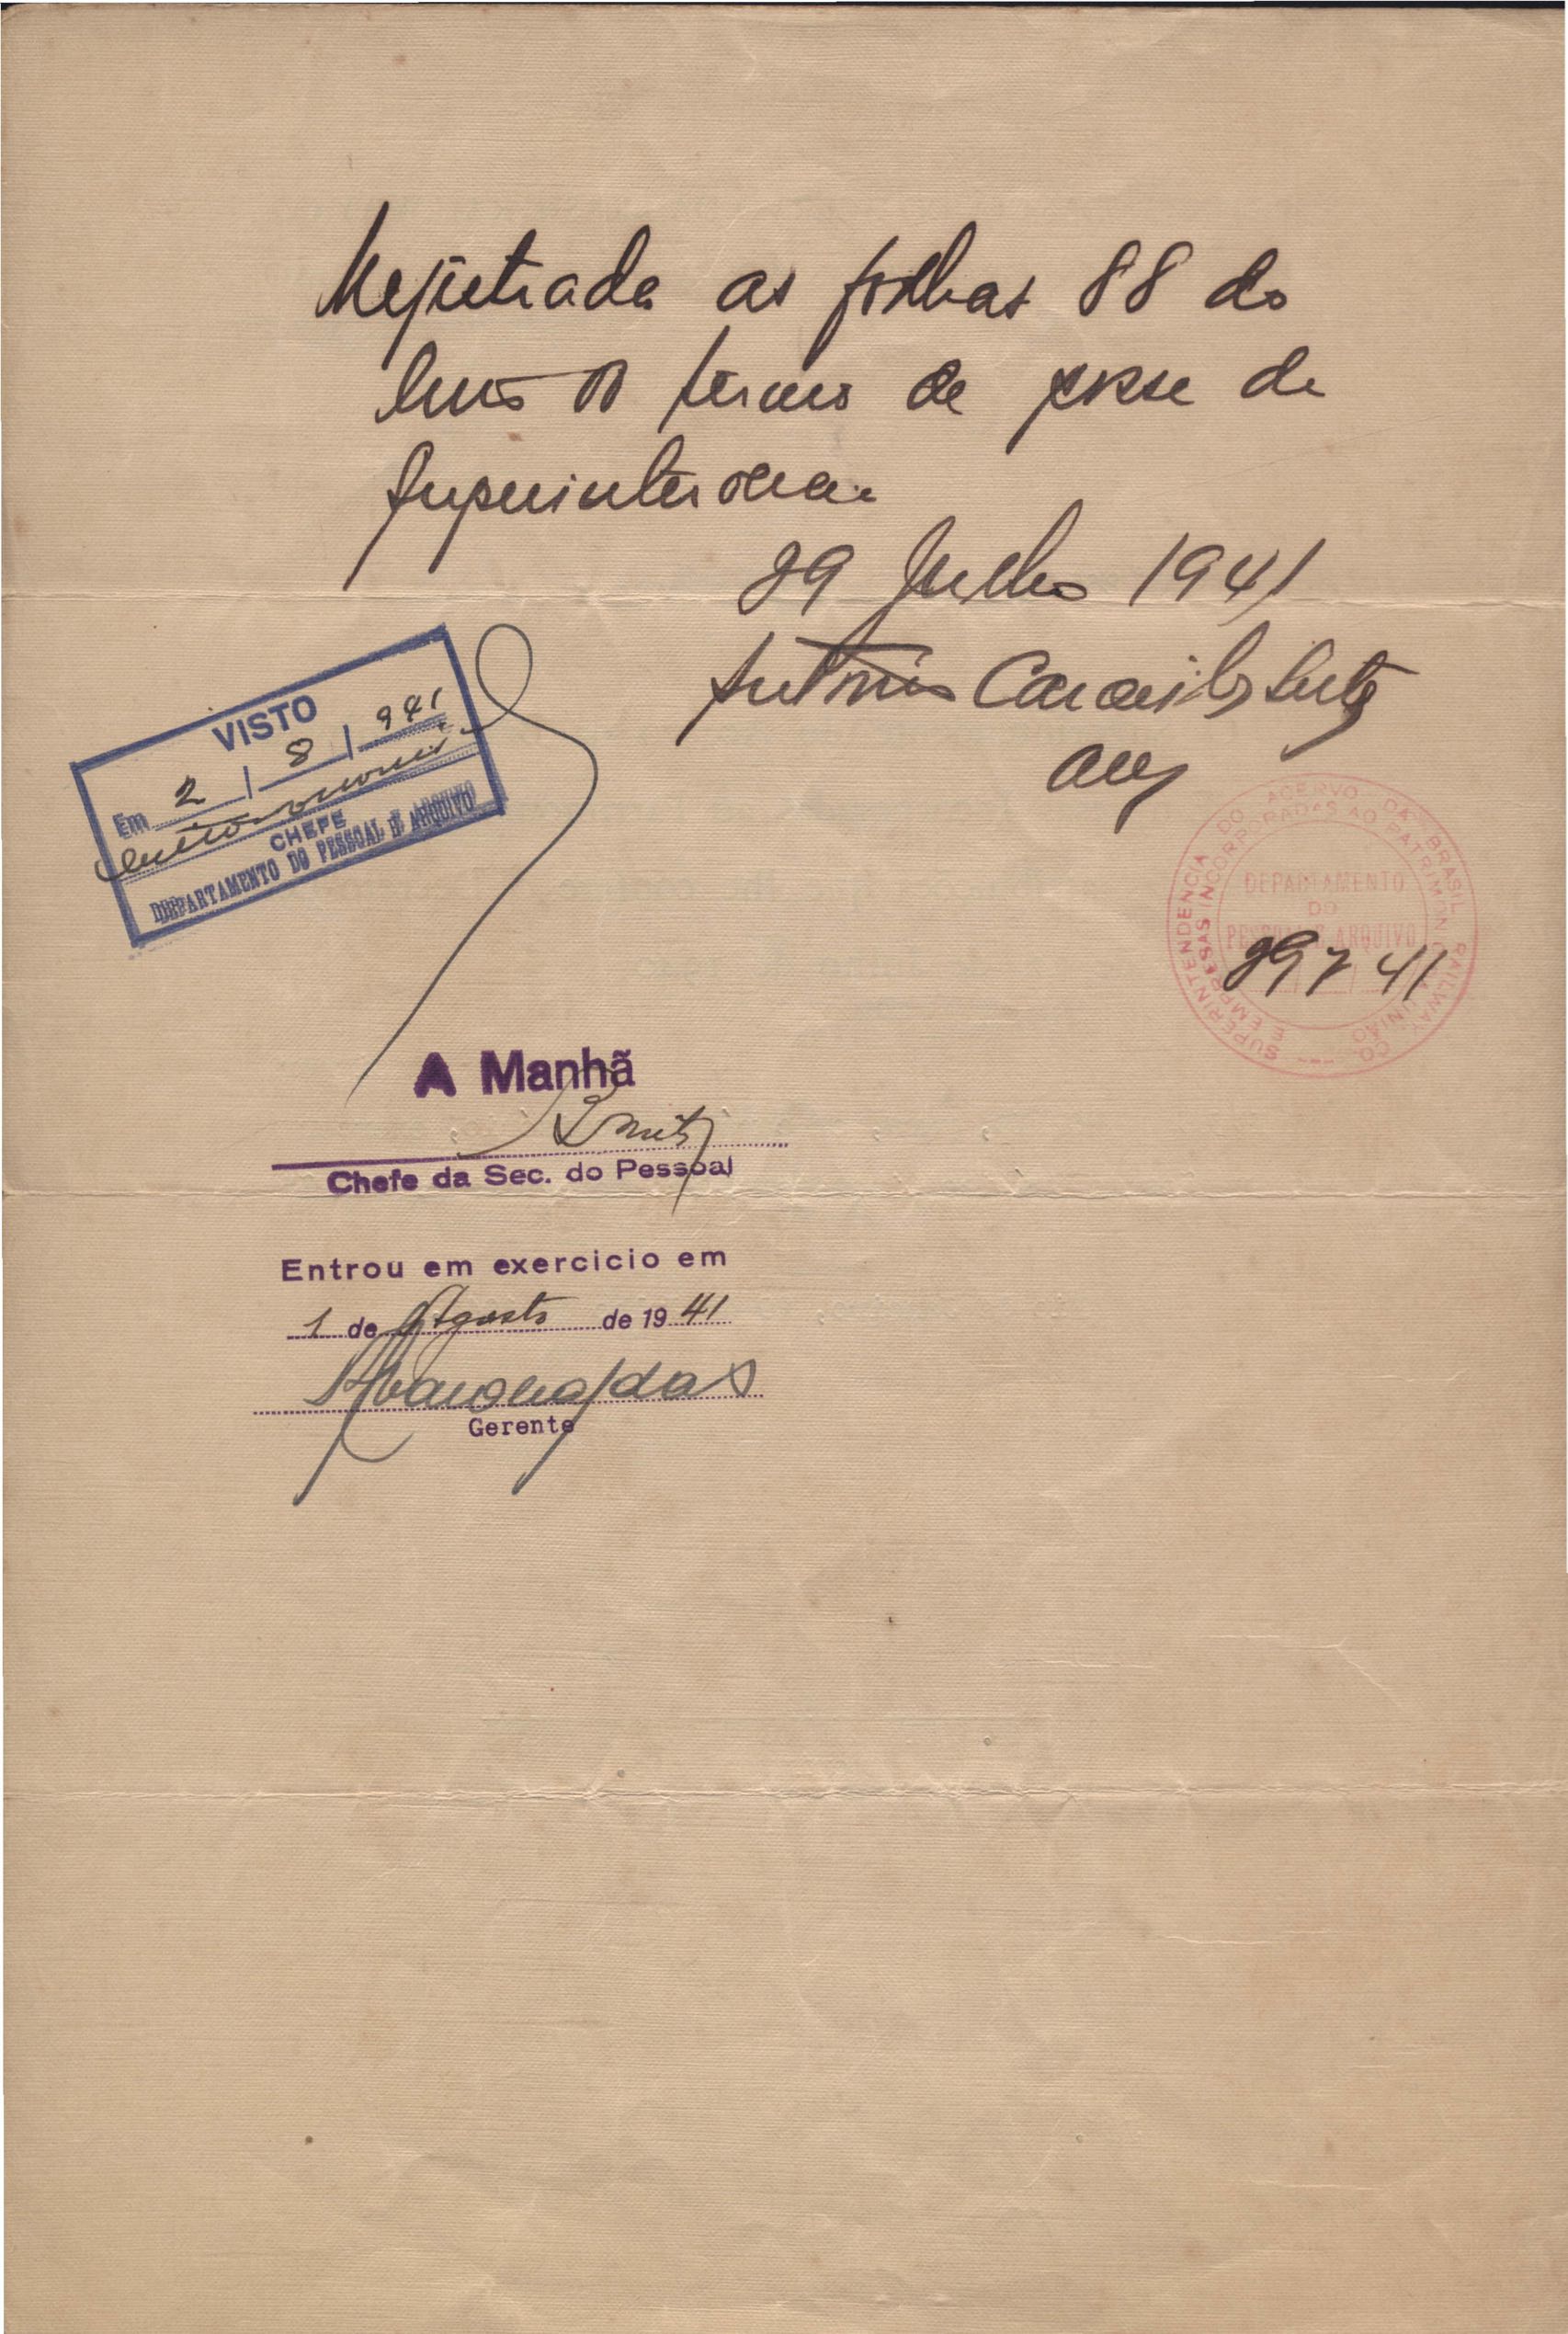 Registrada as folhas 88 do
livro de termo de posse da
Superintendencia
29 Julho 1941
Antonio
VISTO
Em 2 | 8 | 941
CHEFE
DEPARTAMENTO DO PESSOAL E ARQUIVO
SUPERINTENDENCIA DO ACERVO DA BRASIL RAILWAY CO.
E EMPRESAS INCORPORADAS AO PATRIMONIO DA UNIÃO
DEPARTAMENTO
DO
PESSOAL E ARQUIVO
29 7 41
A Manhã
Chefe da Sec. do Pessoal
Entrou em exercicio em
1 de Agosto de 19 41
Gerente